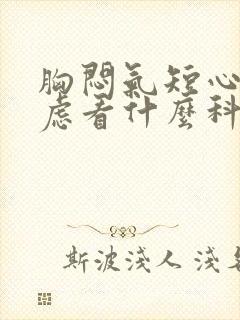 胸悶氣短心
慮看什麼科
斯波淺人 淺